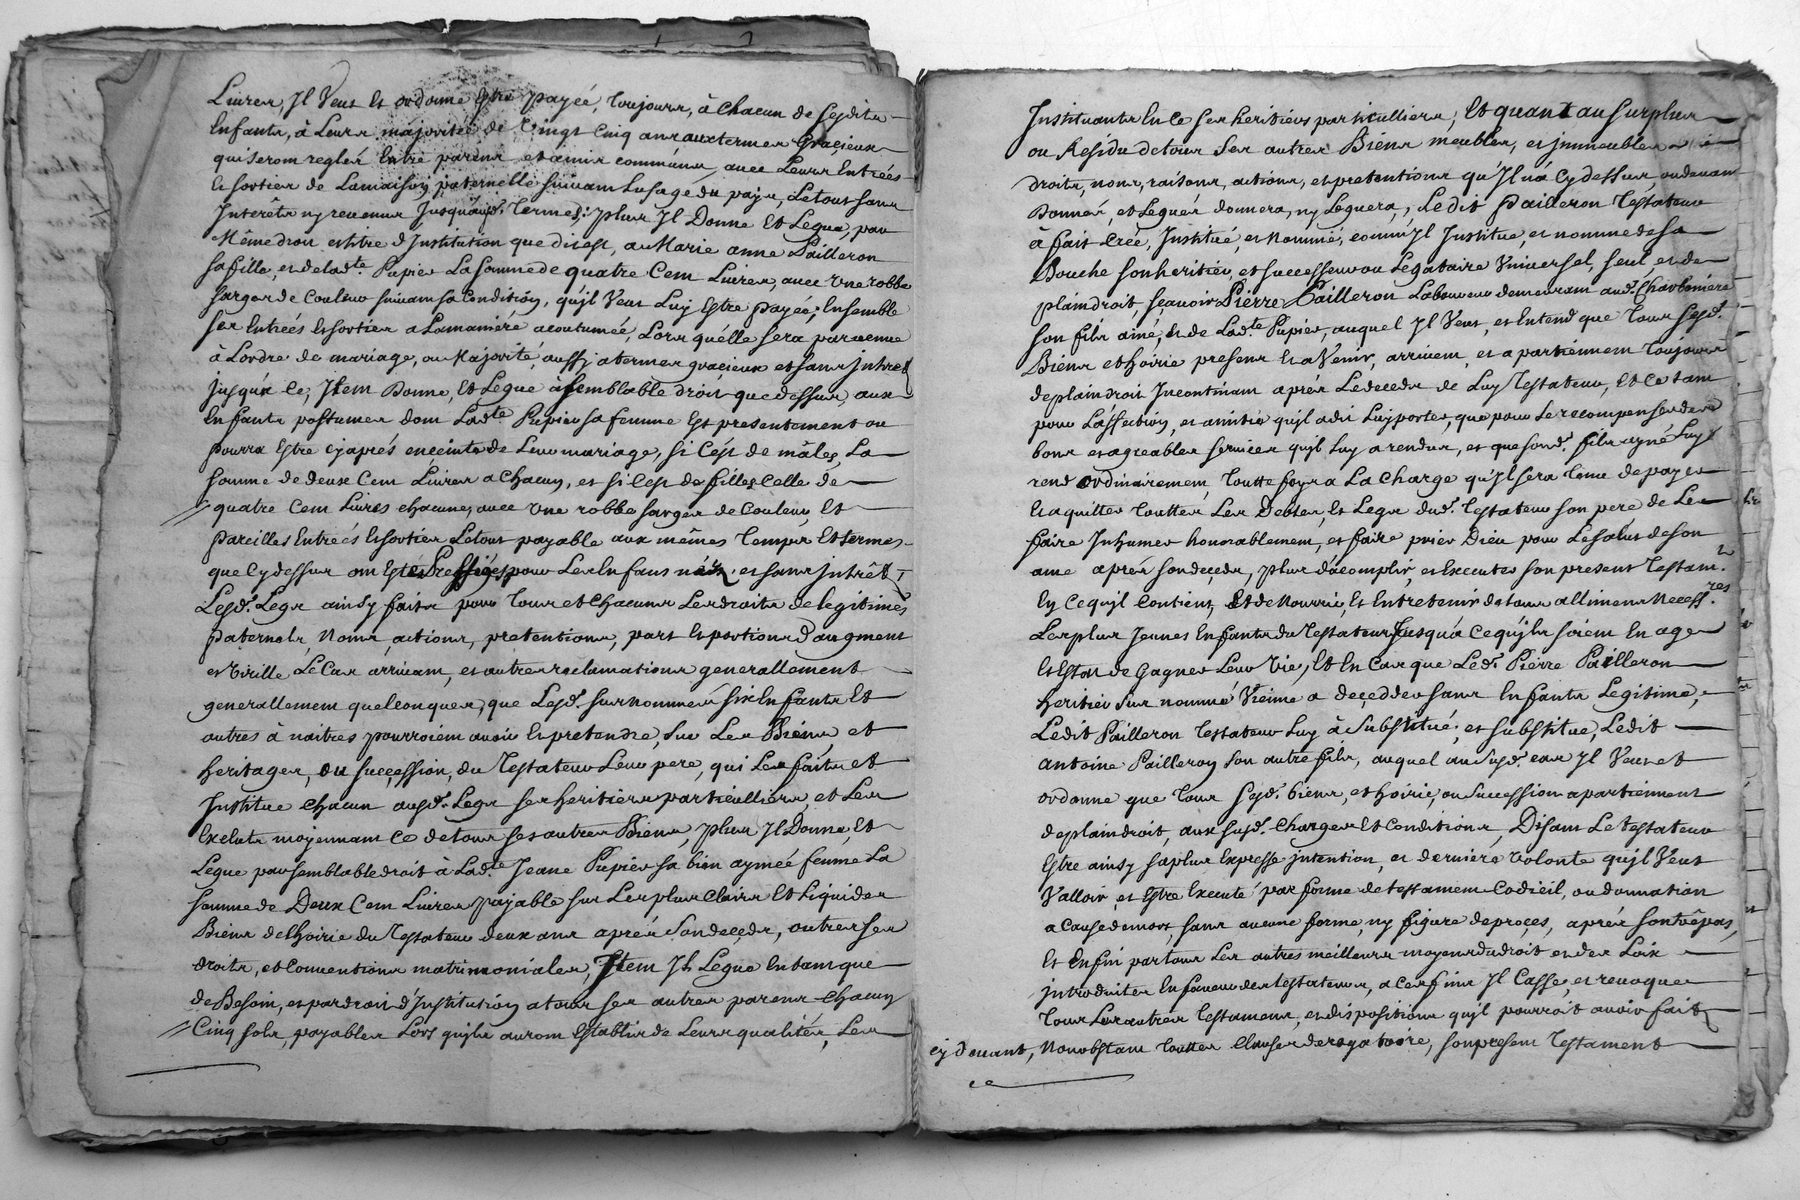 Livres, Il Veut Et ordonne Estre payéé, Toujours, à Chacun de sesdits
Enfants, à Leurs majoritéé de Vingt Cinq ans aux termes Gracieux
qui seront reglés Entre parens et amis communs, avec Leurs Entréés
Et sorties de Lamaison paternelle suivant Lusage du pays, Letout sans
Interêts ny revenus Jusquausd. Termes; plus Il Donne Et Legue, par
Même droit et titre d'Institution que dit est, a Marie anne Pailleron
sa fille, et delad.te Pupier La somme de quatre Cent Livres, avec Une robbe
sarge de Couleur suivant sa Condition, qu'il Veut Luy Estre payéé; Ensemble
ses Entréés Et sorties a Lamaniéré acoutuméé, Lors quélle sera parvenue
à Lordre de mariage, ou Majorité, aussy a termes gracieux et sans jntrest
jusqu'a ce; Item Donne, Et Legue à semblable droit que dessus, aux
Enfants postumes dont Lad.te Pupier sa femme Est presentement ou
pourra Estre cyaprés enceinte de Leur mariage, si C'ést de mâles, La
somme de deux Cent Livres a Chacun, et si C'est de filles Celle de
quatre Cent Livres chacune, avec Une robbe sarge de Couleur, Et
Pareilles Entréés Et sorties Letout payable aux mêmes Temps Et termes
que Cydessus ont Esté Expressiés pour Les Enfans nés, et sans jntrêt
Lesd. Legs ainsy faits pour Tous et Chacuns Les droits de legitimes
paternels, Noms, actions, pretentions, part Et portions d'augment
et Virille Le Cas arrivant, et autres reclamations generallement
generallement quelconques, que Lesd. surnommés six Enfants Et
autres à naitres pourroient avoir Et pretendre, sur Les Biens, et
heritages, ou succession, du Testateur Leur pere, qui Les faits et
Institue Chacun ausd. Legs ses heritiers particulliers, et Les
Exclut moyennant Ce de tous ses autres Biens, plus Il Donne, Et
Legue par semblable droit à Lad.te Jeane Pupier sa bien ayméé femme La
somme de Deux Cent Livres payable sur Les plus Clairs Et Liquides
Biens de Lhoirie du Testateur deux ans aprés Son decéds, outre ses
droits, et Conventions matrimoniales, Item Il Legue Entant que
de Besoin, et par droit d'Institution a tous ses autres parens chacun
Cinq sols, payables Lors qu'ils auront Establir de Leurs qualités, Les
Instituants En Ce ses heritiers particulliers, Et quant au surplus
ou Residu de tous Ses autres Biens meubles, et jmmeubles
droits, noms, raisons, actions, et pretentions qu'Il n'a Cy dessus, ou devant
Donnés, et Legués donnera, ny Leguera, Ledit Pailleron Téstateur
à fait Créé, Institué, et Nommé, comm'Il Institue, et nomme de sa
Bouche son heritier, et successeur ou Legataire Universel, seul et de
plain droit, sçavoir Pierre Pailleron Laboureur demeurant aud. Charboniere
son fils ainé, et de Lad.te Pupier, auquel Il Veut, et Entend que Tous sesd.
Biens et hoirie presens Et a Venir, arrivent, et apartiennent Toujours
de plain droit Incontinant aprés Le decéds de Luy Testateur, Et Ce tant
pour L'affection, et amitié qu'il a dit Luy porter, que pour Le recompenser des
bons et agreables services qu'il Luy a rendus, et que sond. fils ayné Luy
rend ordinairement, Toutte foys a La Charge qu'Il sera Tenu de payer
Et aquitter Touttes Les Debtes, Et Legs dud. Testateur son pere de Le
faire Inhumer honorablement, et faire prier Dieu pour Le salut de son
ame aprés son decéds, plus d'acomplir, et Executer son present Testam.t
En Ce qu'il Contient, Et de Nourrir, Et Entretenir de tous alliments Necess.res
Les plus jeunes Enfants du Testateur Jusqu'a Ce qu'ils soient En age
Et Estat de Gagner Leur Vie, Et En Cas que Led.t Pierre Pailleron
heritier sus nommé Vienne a deçedder sans Enfants Legitime,
Ledit Pailleron Testateur Luy à Substitué, et substitue, Ledit
antoine Pailleron Son autre fils, auquel au susd. cas Il Veut et
ordonne que Tous sesd. biens, et hoirie, ou Succession apartiennent
de plain droit, aux susd. Charges Et Conditions, Disant Le testateur
Estre ainsy sa plus Expresse jntention, et derniére Volonté qu'il Veut
Valloir, et Estre Executé par forme de testament Codicil, ou donnation
a Cause de mort, sans aucune forme, ny figure de proces, aprés son trêpas,
Et Enfin par tous Les autres meilleurs moyens du droit et des Loix
jntroduites En faveur des testateurs, a Ces fins Il Casse, et revoque
Tous Les autres Testamens, et dispositions qu'il pourroit avoir fait
cy devant, Nonobstant Touttes Clauses derogatoire, son present Testament